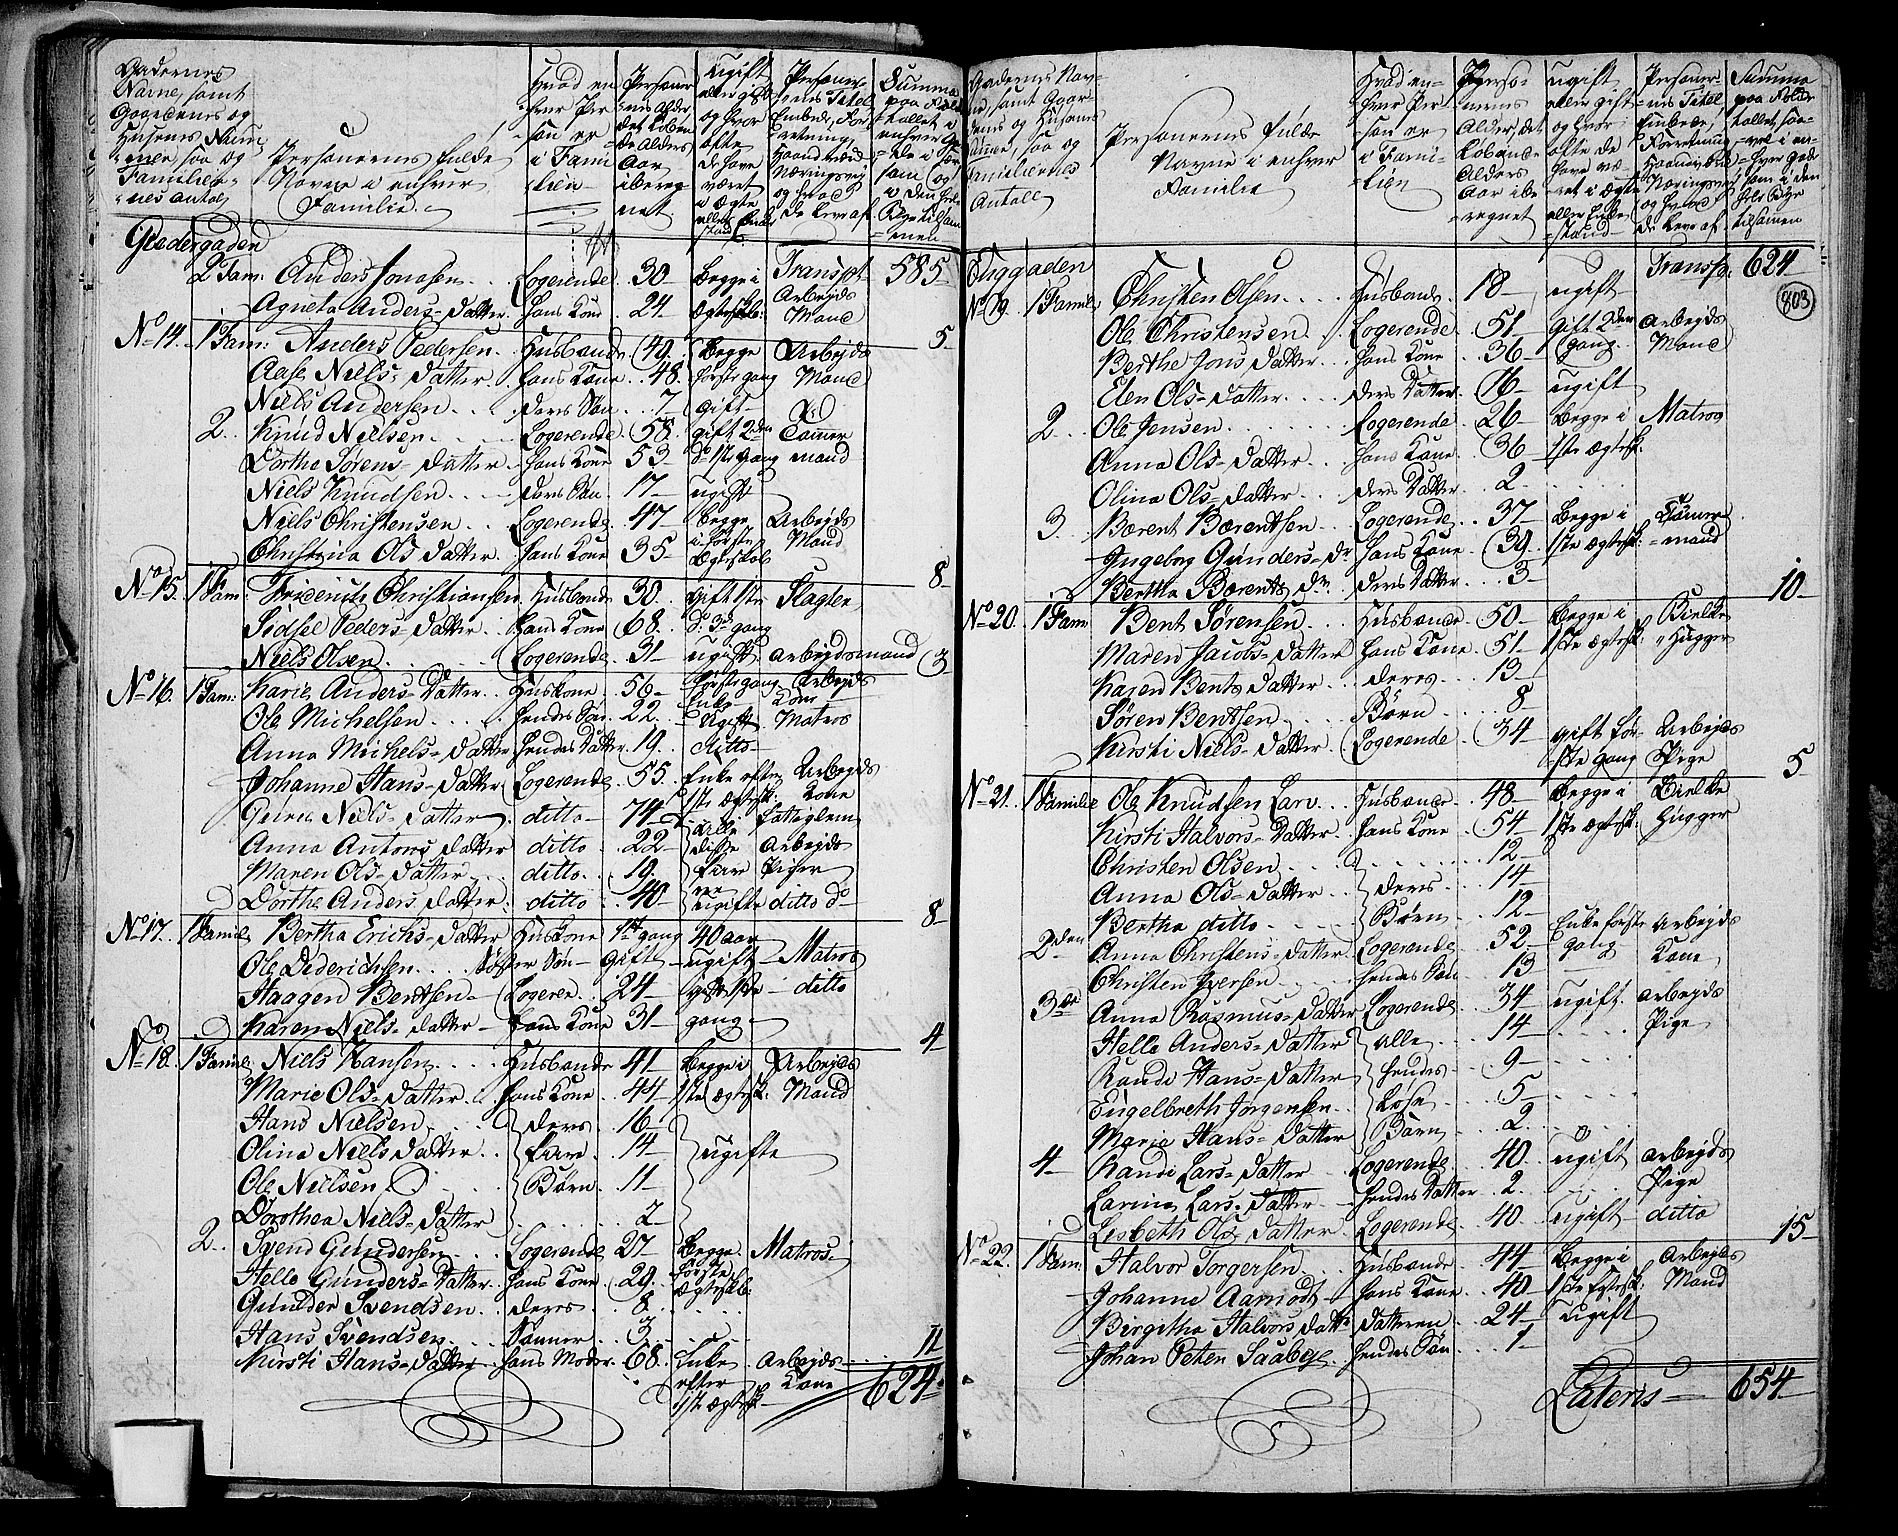 Gadernes
Navne, samt
Gaardenes og
Husenes Num
mer, saa og
Familier-
nes antal
Personernes fulde
Navne i enhver
Familie.
Hvad en
hver Per
son er
i Fami
lien
Personer
nes Alder
det løben
de Alders
Aar
ibereg
net.
ugift
eller gift
og hvor
ofte
de have
været
i Ægte
Personer
nes Titel
Embede, For
retning,
Haandværk
Næringsvej
og hvad
de leve af
Summa
paa
tallet i
enhver
Gadergaden
2 Fam: Anders Jonasen Logerende 30 begge i Transpt 585
Agneta Anders-Datter hans Kone 24 Ægteskb: Arbeyds Mand
No 14. 1 Fam: Anders Pedersen Husbonde 49. begge Arbejds 5
Aase Niels-Datter hans Kone 48. første gang Mand
Niels Andersen deres Søn 7 ugift
2 Knud Nielsen Logerende 58. gift 2den Tømmer
Dorthe Sørens-Datter hans Kone 53 do 1ste gang mand
Niels Knudsen deres Søn 17 ugift
Niels Christensen Logerende 47 begge Arbeyds
Christina Ols Datter hans Kone 35 i første Ægteskab Mand
8
No 15. 1 Fam: Friderich Christiansen Husbonde 30. gift 1ste Slagter
Sidsel Peders-Datter hans Kone 68. do 3die gang
Niels Olsen Logerende 31 ugift Arbeydsmand 3
No 16. 1 Fam: Karie Anders-Datter Huskone 56 første gang Arbeyds
Enke Kone
Ole Michelsen hendes Søn 22 Ugift Matros
Anna Michels-Datter hendes Datter 19. ditto
Johanne Hans-Datter Logerende 55. Enke efter Arbeyds
1ste Ægtesk: Kone
Niels-Datter ditto 74 fattiglem
Anna Antons Datter ditto 22 alle disse Arbeyds
Maren Ols-Datter ditto 19. Piger
Dorthe Anders Datter ditto 40 ugifte ditto do 8
No 17. 1 Famil. Bertha Erichs-Datter Huskone 1ste gang 40 aar
Ole Diderichsen Søster Søn Gift ugift Matros
Haagen Bentsen Logeren 24 gift 1ste ditto
Karen Niels-Datter hans Kone 31 gang 4
No 18. 1 Famil. Niels Hansen Husbonde 41 begge i Arbeyds
Marie Ols-Datter hans Kone 44 1ste Ægtesk: Mand
Hans Nielsen deres 16
Olina Niels Datter fire 14 ugifte
Ole Nielsen Børn 11
Dorothea Niels-Datter 2
2 Svend Gundersen Logerende 27 Begge Matros
Helle Gunders-Datter hans Kone 29. første Ægteskb:
Gunder Svendsen deres 8
Hans Svendsen Sønner 3 11
Kirsti Hans-Datter hans Moder 68. Enke Arbeyds
efter Kone 624
1ste Ægtesk
Gadernes Nav-
ne, samt Gaar-
denes og Husenes
Nummer, saa og
Familiernes
Antall
Personernes fulde
Navne i enhver
Familie
Hvad en-
hver Per-
son er
i Fami-
lien
Perso-
nernes
Alder, det
løbende
Alders
Aar ibe
regnet
ugift
eller gift
og hvor
ofte de
have væ-
ret i Ægte
eller Enke
stand
Personer
nes Titel
Embede,
Forretning
Haandværk
Næringsvej
og hvad
de leve af
Summa
paa Folke
tallet, saa-
vel i en-
hver Gade
som i den
hele Bye
tilsammen
803
Suggaden Transp. 624
No 19. 1 Famile Christen Olsen Husbonde 18 ugift
Ole Christensen Logerende 51 gift 2den Arbeyds
Berthe Jons Datter hans Kone 36 gang Mand
Elen Ols-Datter deres Datter 16 ugift
2 Ole Jensen Logerende 26 begge i Matros
Anna Ols-Datter hans Kone 36 1ste Ægtesk
Olina Ols-Datter deres Datter 2
3. Bærent Bærentsen Logerende 37 begge i Tømmer
Ingeborg Gunders-Dr hans Kone 39. 1ste Ægtesk: mand
Bertha Bærents Dr. deres Datter 3 10
No 20. 1 Fam: Bent Sørensen Husbonde 50 begge i Bielke
Maren Jacobs-Datter hans Kone 51 1ste Ægtesk: Hugger
Karen Bents Datter deres 13
Søren Bentsen Børn 8
Kirsti Niels-Datter Logerende 34 gift før- Arbeyds
ste gang Pige 5
No 21. 1 Familie Ole Knudsen Larv Husbonde 48 begge i Bielke
Kirsti Halvors-Datter hans Kone 54 1ste Ægtesk: Hugger
Christen Olsen 12
Anna Ols-Datter deres 14
Bertha ditto Børn 12
2den Anna Christens-Datter Logerende 52 Enke første Arbeyds
gang Kone
Christen Iversen hendes Søn 13
3de Anna Rasmus-Datter Logerende 34 ugift Arbeyds
Helle Anders-Datter alle 14 Pige
Randi Hans-Datter hendes 9
Engelbreth Jørgensen Løse 5
Marie Hans-Datter Børn 2
4 Randi Lars-Datter Logerende 40 ugift arbeyds
Larine Lars-Datter hendes Datter 2. Pige
Lisbeth Ols Datter Logerende 40 ugift ditto 15
No 22. 1 Fam: Halvor Torgersen Husbonde 44 begge i Arbeyds
Johanne Aamodt hans Kone 40 1ste Egtesk. Mand
Birgitha Halvors Datter Datteren 24 ugift
Johan Peter Saabye hendes Søn 1
Lateris 654